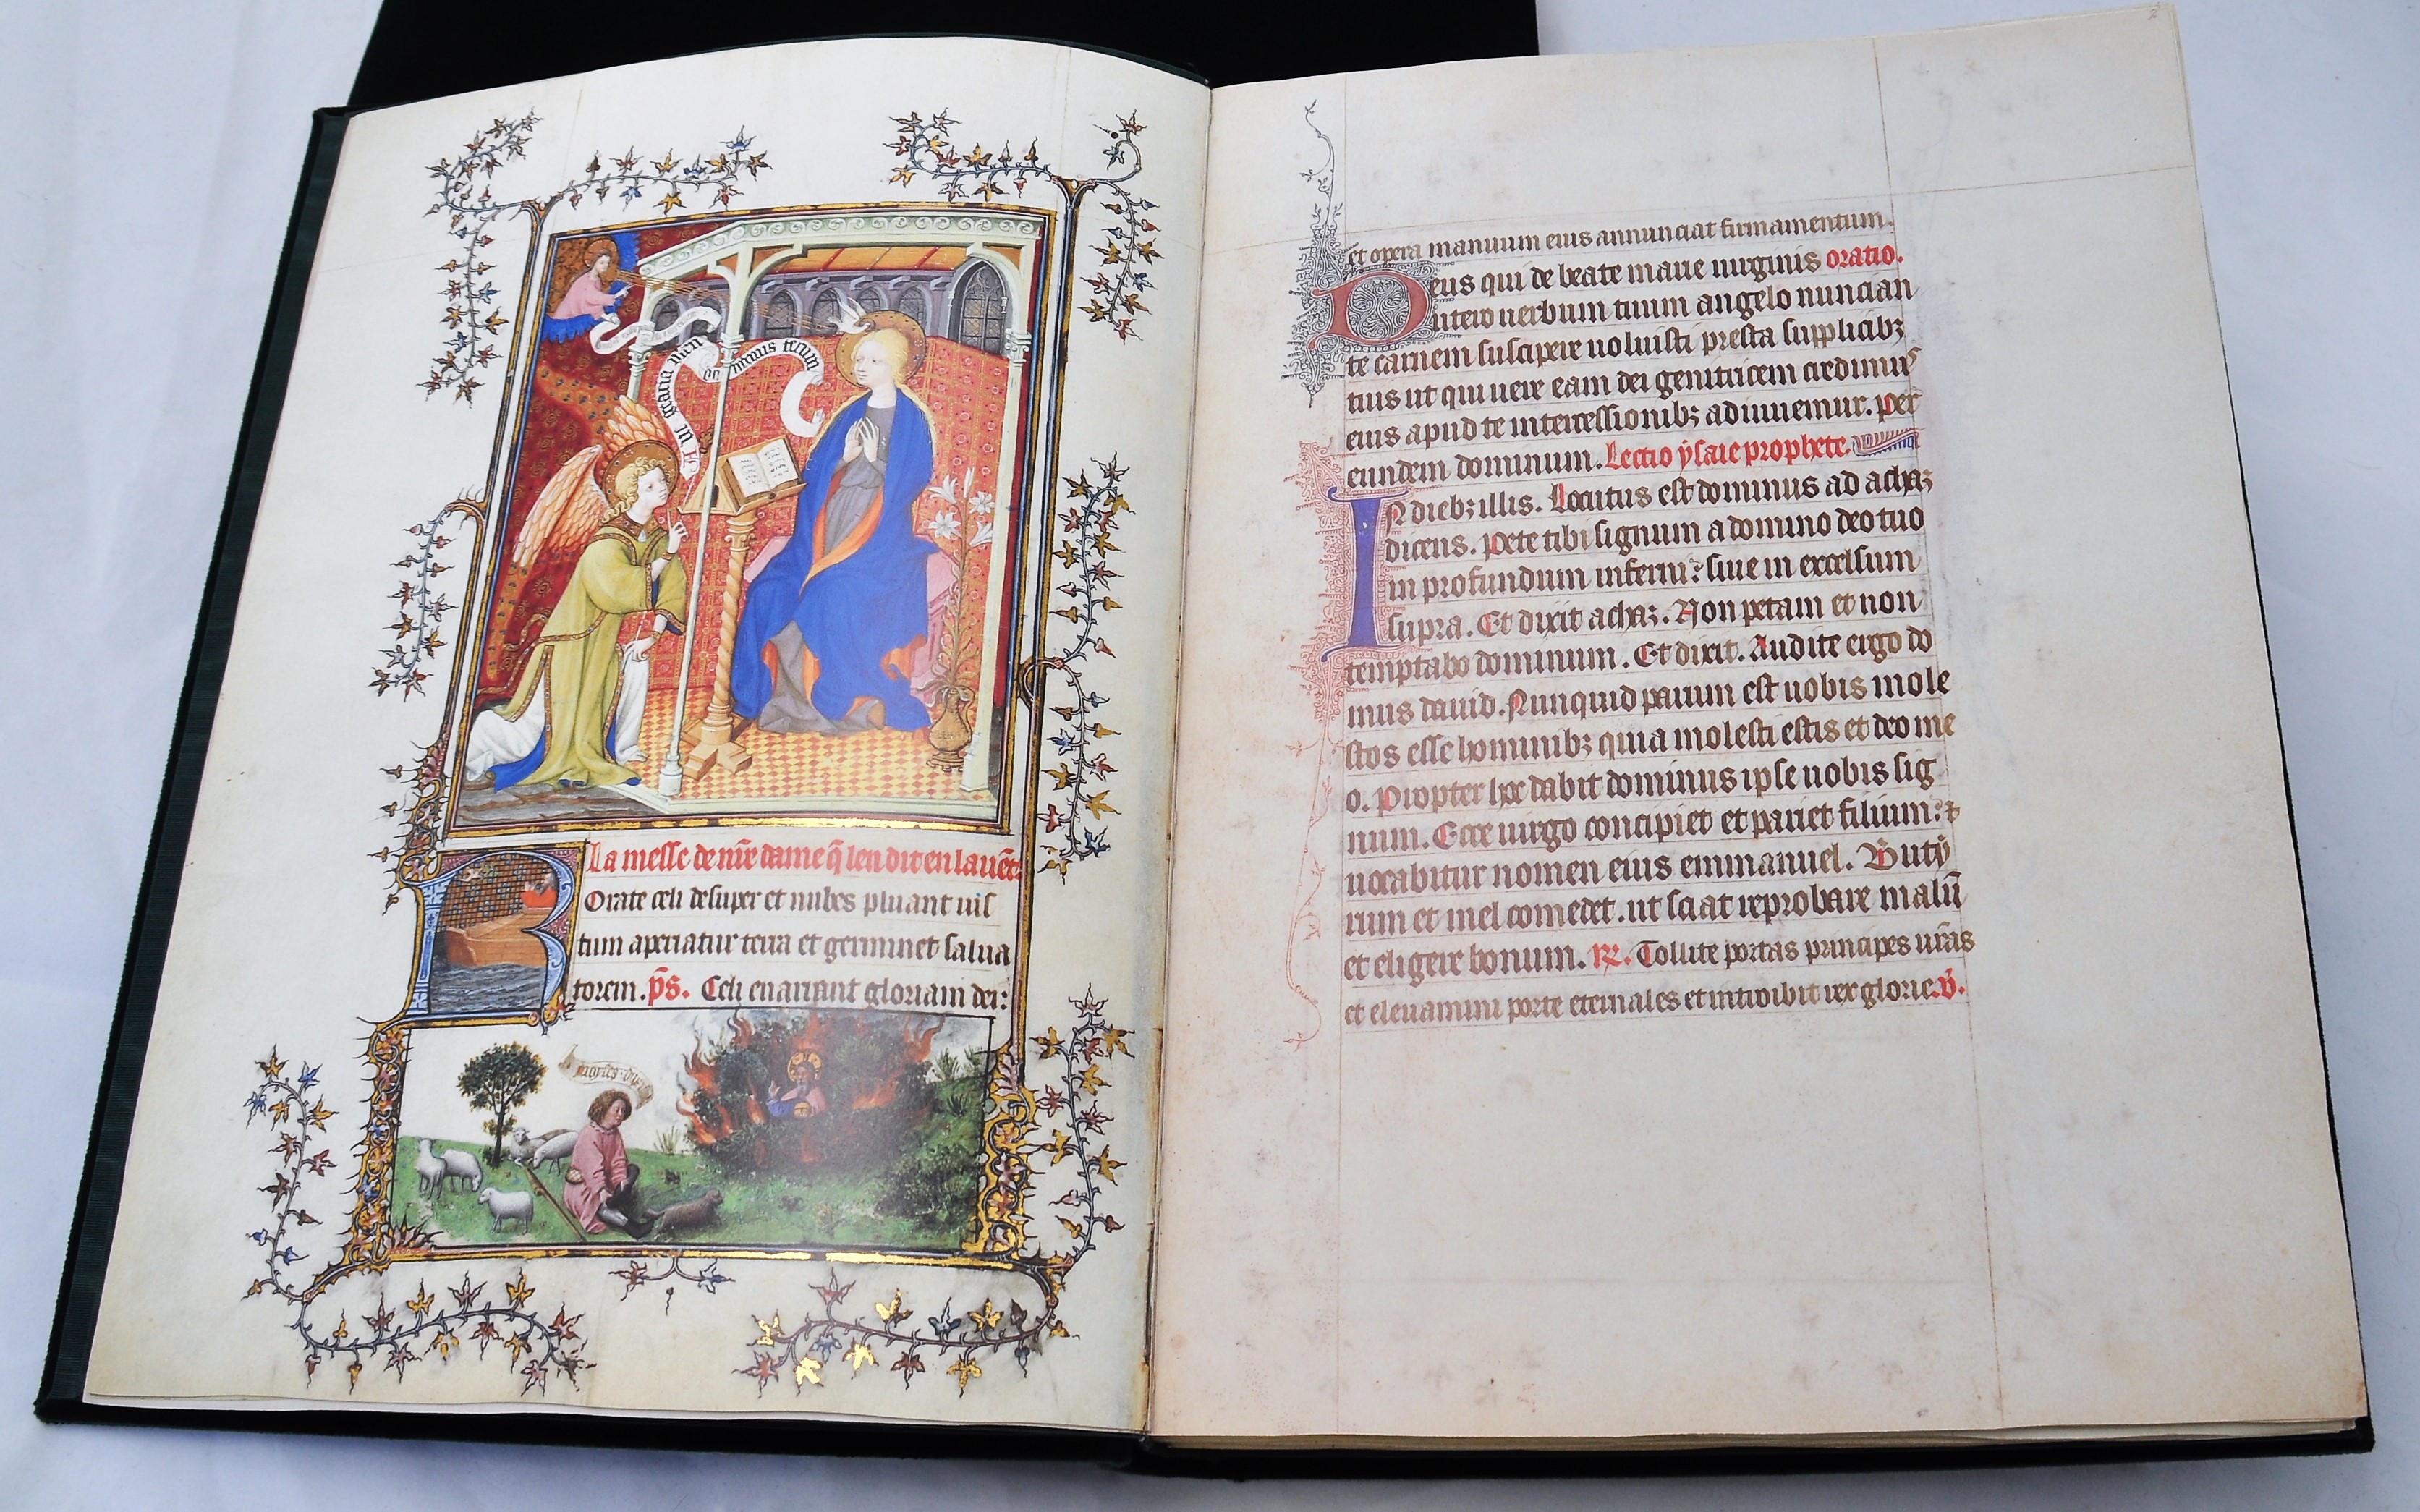 gracia plen
dominus tecum
La messe de nr̄e dame q̄ len dit en lauēt
Rorate celi desuper et nubes pluant ius
tum aperiatur terra et germinet salua
torem. p̄s. Celi enarrant gloriam dei:
moyses
2
et opera manuum eius annunciat firmamentum.
Deus qui de beate marie uirginis oratio.
utero uerbum tuum angelo nuncian
te carnem suscipere uoluisti presta supplicibꝫ
tuis ut qui uere eam dei genitricem credimus
eius apud te intercessionibꝫ adiuuemur. per
eundem dominum. Lectio ysaie prophete.
In diebꝫ illis. Locutus est dominus ad achaz
dicens. Pete tibi signum a domino deo tuo
in profundum inferni: siue in excelsum
supra. Et dixit achaz. Non petam et non
temptabo dominum. Et dixit. Audite ergo do
mus dauid. Nunquid parum est uobis mole
stos esse hominibꝫ quia molesti estis et deo me
o. Propter hoc dabit dominus ipse uobis sig
num. Ecce uirgo concipiet et pariet filium: ⁊
uocabitur nomen eius emmanuel. Buty
rum et mel comedet. ut sciat reprobare malū
et eligere bonum. ℟. Tollite portas principes ur̄as
et eleuamini porte eternales et introibit rex glorie. ℣.